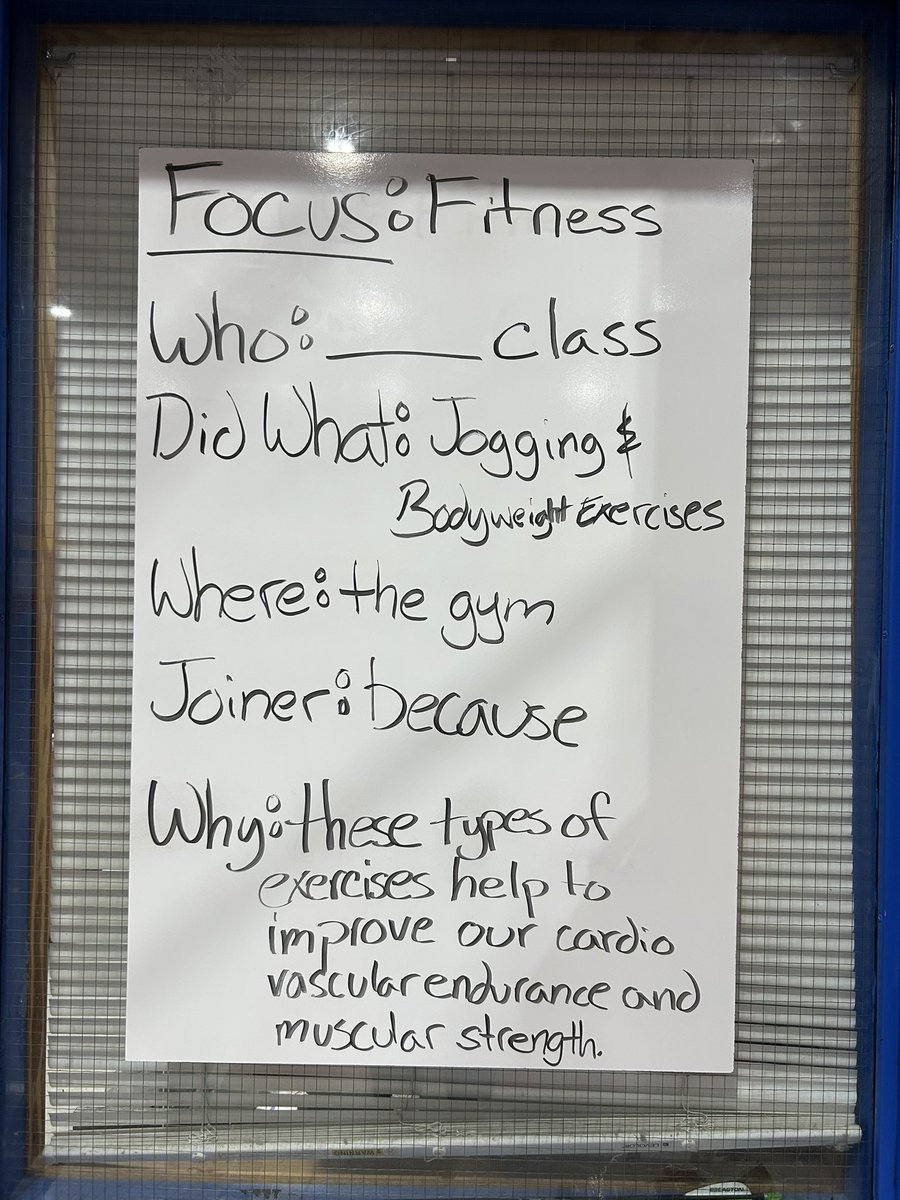 Focus: Fitness
Who: _____ class
Did What: Jogging &
Bodyweight Exercises
Where: the gym
Joiner: because
Why: these types of
exercises help to
improve our cardio
vascular endurance and
muscular strength.
WARNING
EASTON